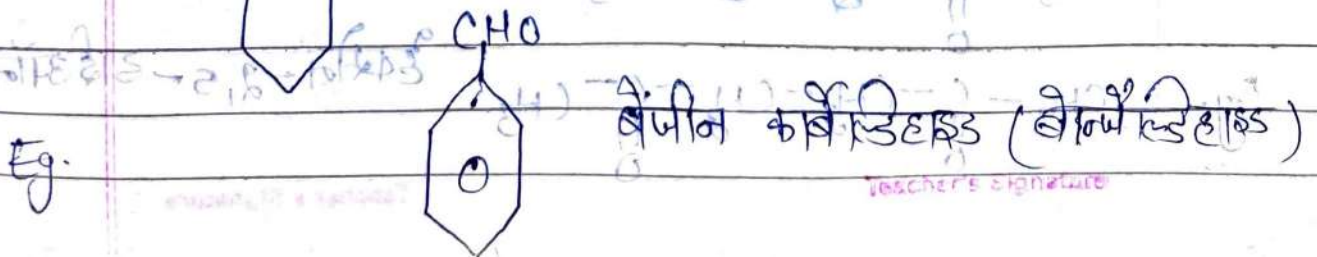 CHO
Eg. बेंजीन कार्बेल्डिहाइड (बेन्जेल्डिहाइड)
Teacher's Signature